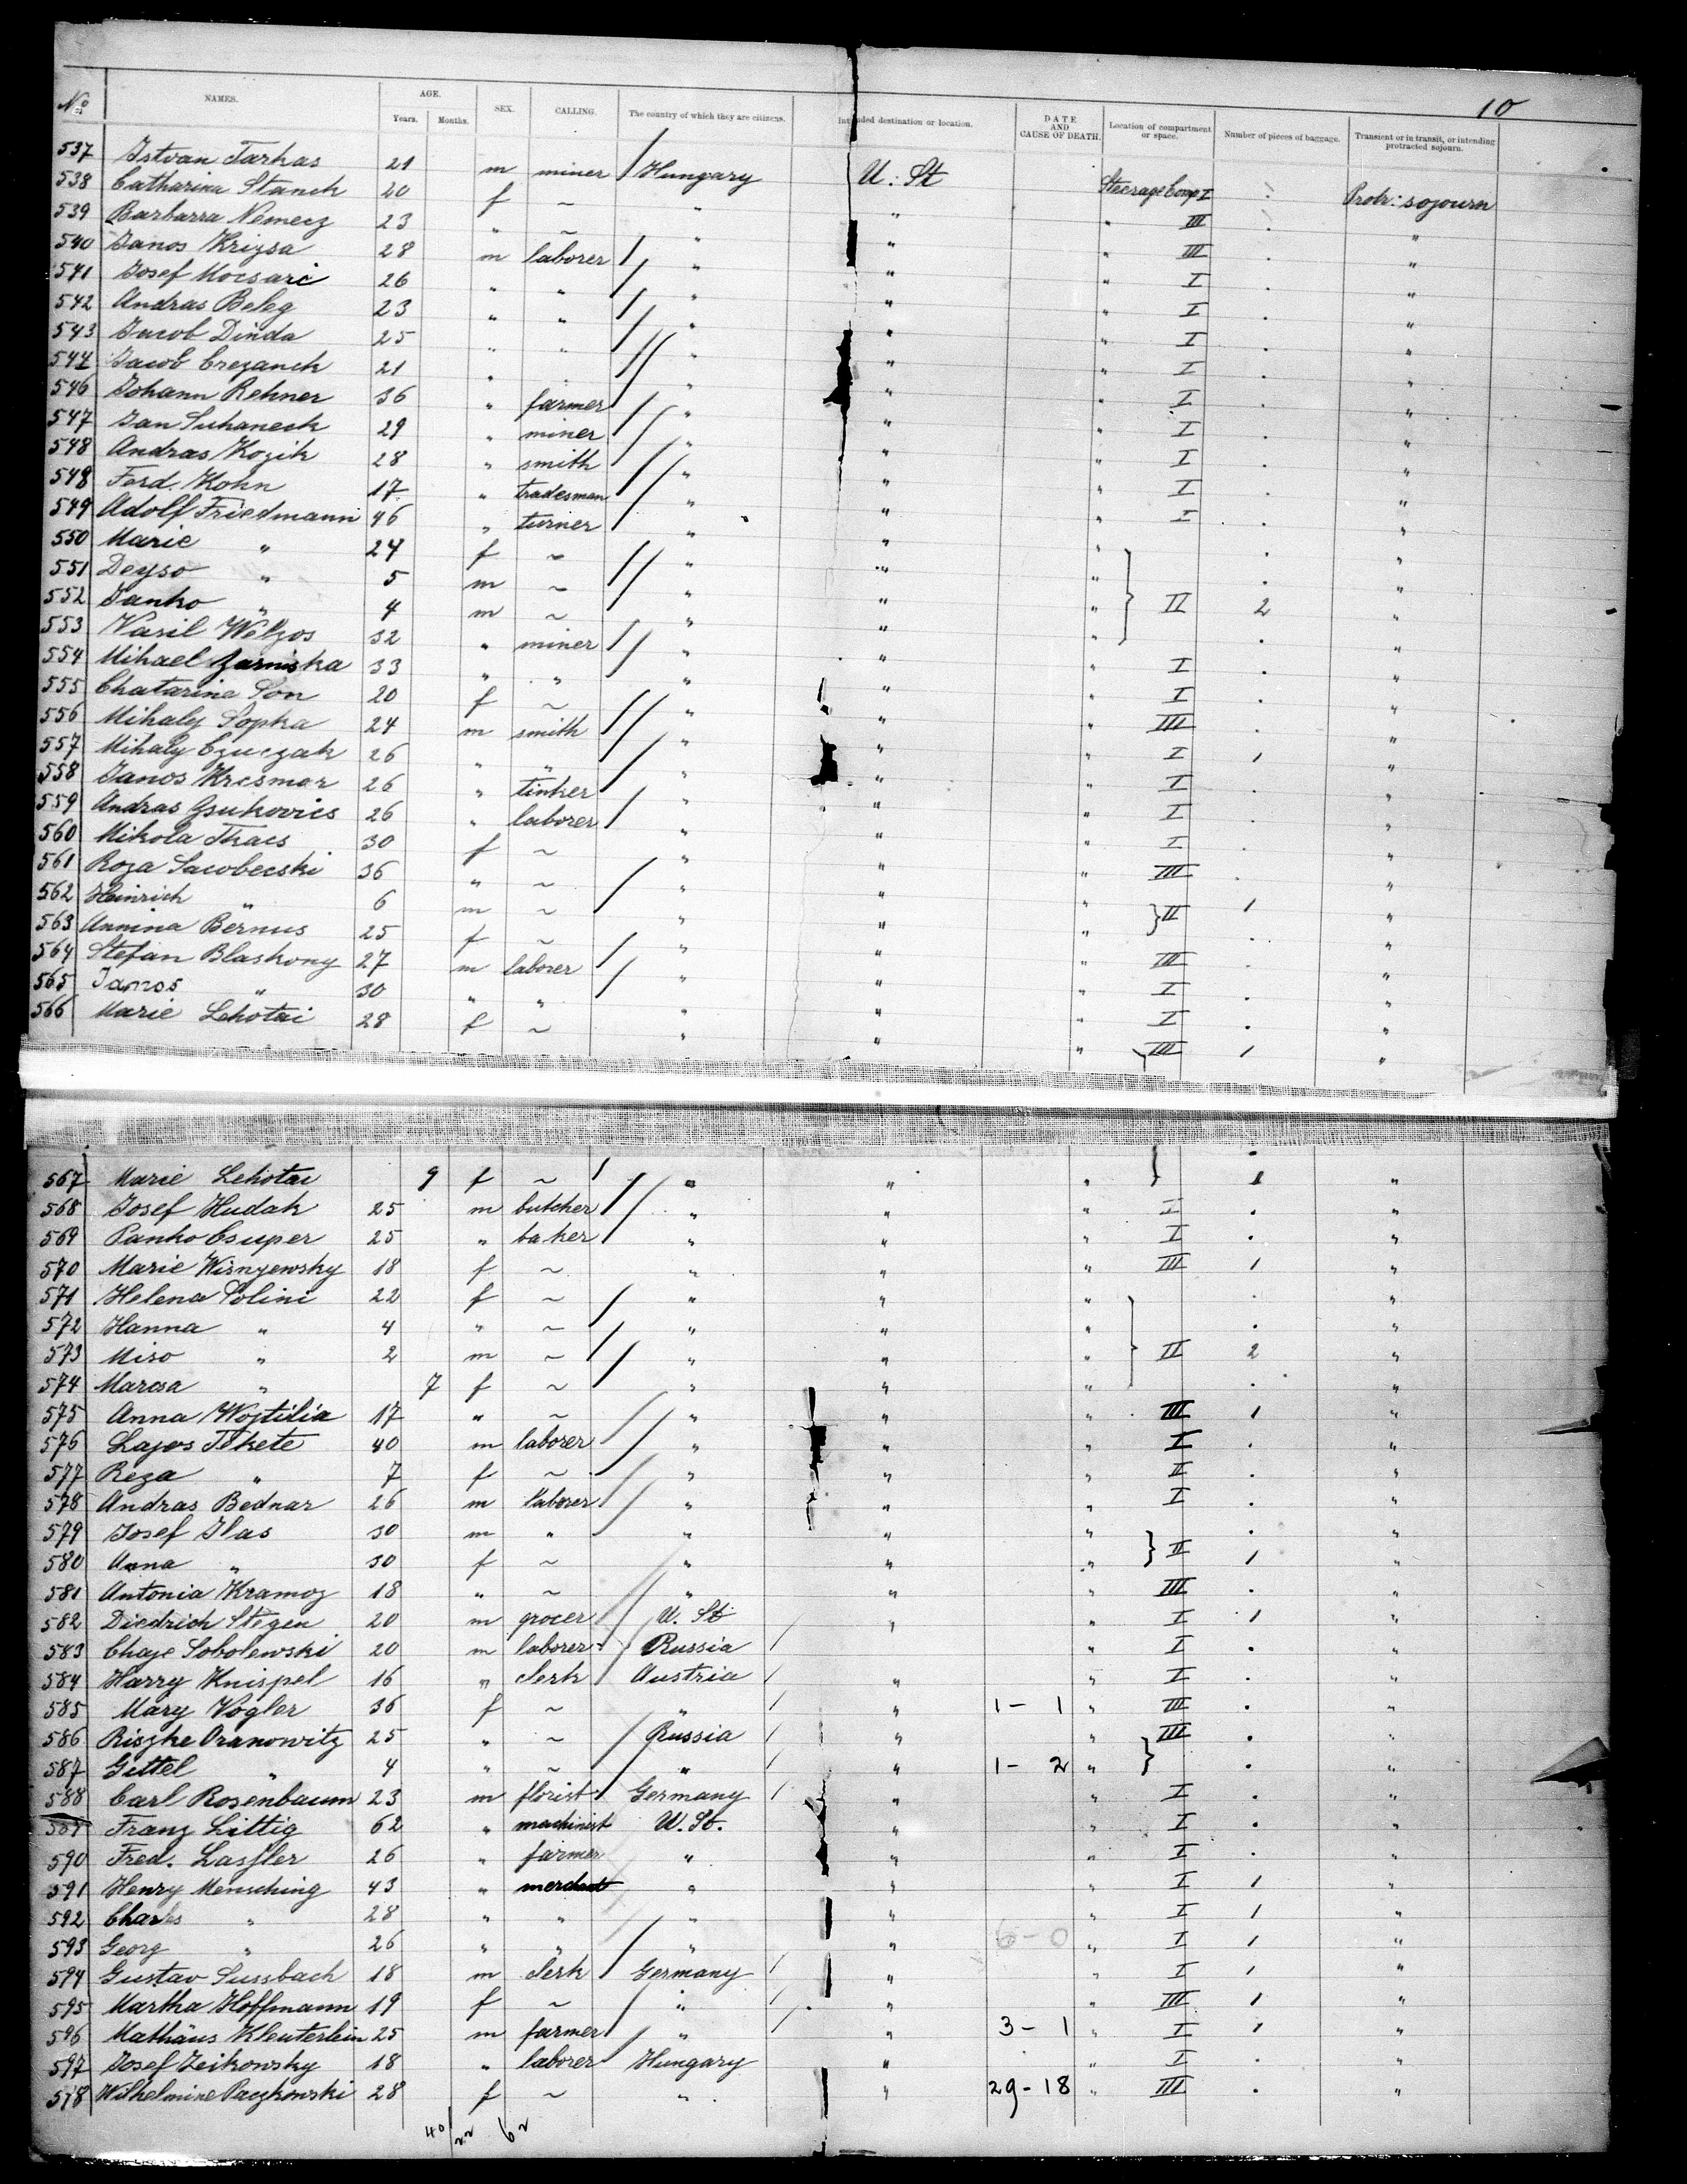 10
No NAMES. AGE. Years. Months. SEX. CALLING. The country of which they are citizens. Intended destination or location. DATE AND CAUSE OF DEATH. Location of compartment or space. Number of pieces of baggage. Transient or in transit, or intending protracted sojourn.
537 Istvan Tarkas 21 m miner Hungary U. St Steerage Comp I Protr: sojourn
538 Catharina Stanek 20 f ~ " " " III "
539 Barbarra Nemecz 23 " ~ " " " III "
540 Janos Krizsa 28 m laborer " " " I "
541 Josef Mocsari 26 " " " " " I "
542 Andras Beleg 23 " " " " " I "
543 Jacob Dinda 25 " " " " " I "
544 Jacob Crezanek 21 " " " " I "
546 Johann Rehner 36 " farmer " " " I "
547 Jan Suhaneck 29 " miner " " " I "
548 Andras Kozik 28 " smith " " " I "
548 Ferd. Kohn 17 " tradesman " " " I "
549 Adolf Friedmann 46 " turner " " " "
550 Marie " 24 f ~ " " " "
551 Deyso " 5 m ~ " " " II 2 "
552 Janko " 4 m ~ " " " "
553 Vasil Welzos 32 " miner " " " I "
554 Mihael Zarniska 33 " " " " " I "
555 Chatarina Son 20 f ~ " " " III "
556 Mihaly Sopka 24 m smith " " " I 1 "
557 Mihaly Czuczak 26 " " " " " I "
558 Janos Kresmar 26 " tinker " " " I "
559 Andras Gsukovics 26 " laborer " " " I "
560 Mikola Tkacs 30 f ~ " " " III "
561 Roza Jacobecski 36 " ~ " " " 1 "
562 Heinrich " 6 m ~ " " " II "
563 Annina Bernus 25 f ~ " " " III "
564 Stefan Blaskony 27 m laborer " " " I "
565 Janos " 30 " " " " " I "
566 Marie Lehotai 28 f ~ " " " III 1 "
567 Marie Lehotai 9 f ~ " " " 1 "
568 Josef Hudak 25 m butcher " " " I "
569 Panko Csuper 25 " baker " " " I "
570 Marie Wisnyewsky 18 f ~ " " " III 1 "
571 Helena Solini 22 f ~ " " " "
572 Hanna " 4 " ~ " " " "
573 Miso " 2 m ~ " " " II 2 "
574 Marcsa " 7 f ~ " " " "
575 Anna Wojtilia 17 " ~ " " " III 1 "
576 Lajos Tekete 40 m laborer " " " I "
577 Reza " 7 f ~ " " " II "
578 Andras Bednar 26 m laborer " " " I "
579 Josef Ilas 30 m " " " " "
580 Anna " 30 f ~ " " " II 1 "
581 Antonia Kramoz 18 " ~ " " " III "
582 Diedrich Stegen 20 m grocer U. St " " I 1 "
583 Chaje Sobolewski 20 m laborer Russia " I "
584 Harry Knispel 16 " clerk Austria " " I "
585 Mary Vogler 36 f ~ " " 1 - 1 " III "
586 Riszke Oranowitz 25 " ~ Russia " " III "
587 Gittel " 4 " ~ " " 1 - 2 " "
588 Carl Rosenbaum 23 m florist Germany " " I "
589 Franz Littig 62 " machinist U. St. " " I "
590 Fred. Lassler 26 " farmer " " " I "
591 Henry Mensching 43 " merchant " " " I 1 "
592 Charles " 28 " " " " " I 1 "
593 Georg " 26 " " " " 6 - 0 " I 1 "
594 Gustav Sussbach 18 m clerk Germany " " I 1 "
595 Martha Hoffmann 19 f ~ " " " III 1 "
596 Mathäus Kleuterlein 25 m farmer " " 3 - 1 " I 1 "
597 Josef Zeikowsky 18 " laborer Hungary " " I "
598 Wilhelmine Paczkowski 28 f ~ " " 29 - 18 " III "
40 22 62